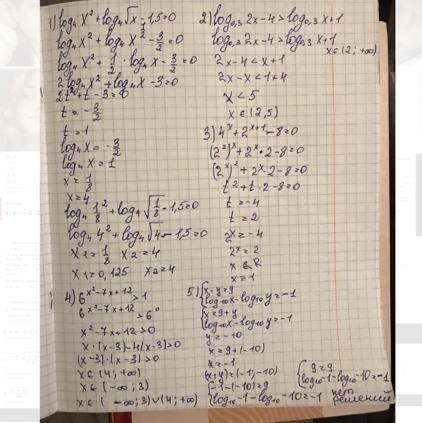 1) log₄ x² + log₄ √x - 1,5 = 0
log₄ x² + log₄ x^½ - 3/2 = 0
log₄ x² + 1/2 · log₄ x - 3/2 = 0
2 log₄ x² + log₄ x - 3 = 0
2t² + t - 3 = 0
t = -3/2
t = 1
log₄ x = -3/2
log₄ x = 1
x = 1/8
x = 4
log₄ 1/8² + log₄ √1/8 - 1,5 = 0
log₄ 4² + log₄ √4 - 1,5 = 0
x₁ = 1/8 x₂ = 4
x₁ = 0,125 x₂ = 4
2) log₀,₃ 2x-4 > log₀,₃ x+1
log₀,₃ 2x-4 > log₀,₃ x+1
x∈(2; +∞)
2x-4 < x+1
2x-x < 1+4
x < 5
x∈(2,5)
3) 4^x + 2^(x+1) - 8 = 0
(2²)^x + 2^x · 2 - 8 = 0
(2^x)² + 2^x · 2 - 8 = 0
t² + t · 2 - 8 = 0
t = -4
t = 2
2^x = -4
2^x = 2
x ∉ R
x = 1
4) 6^(x²-7x+12) > 1
6^(x²-7x+12) > 6⁰
x²-7x+12 > 0
x·(x-3)-4(x-3) > 0
(x-3)·(x-3) > 0
x∈(4; +∞)
x∈(-∞; 3)
x∈(-∞; 3)∪(4; +∞)
5) {x-y=9
log₁₀x - log₁₀y = -1
{x = 9+y
log₁₀x - log₁₀y = -1
y = -10
x = 9+(-10)
x = -1
(x; y) = (-1; -10)
{-1-(-10) = 9
log₁₀-1 - log₁₀-10 = -1
{9 = 9
log₁₀-1 - log₁₀-10 = -1
нет
решений